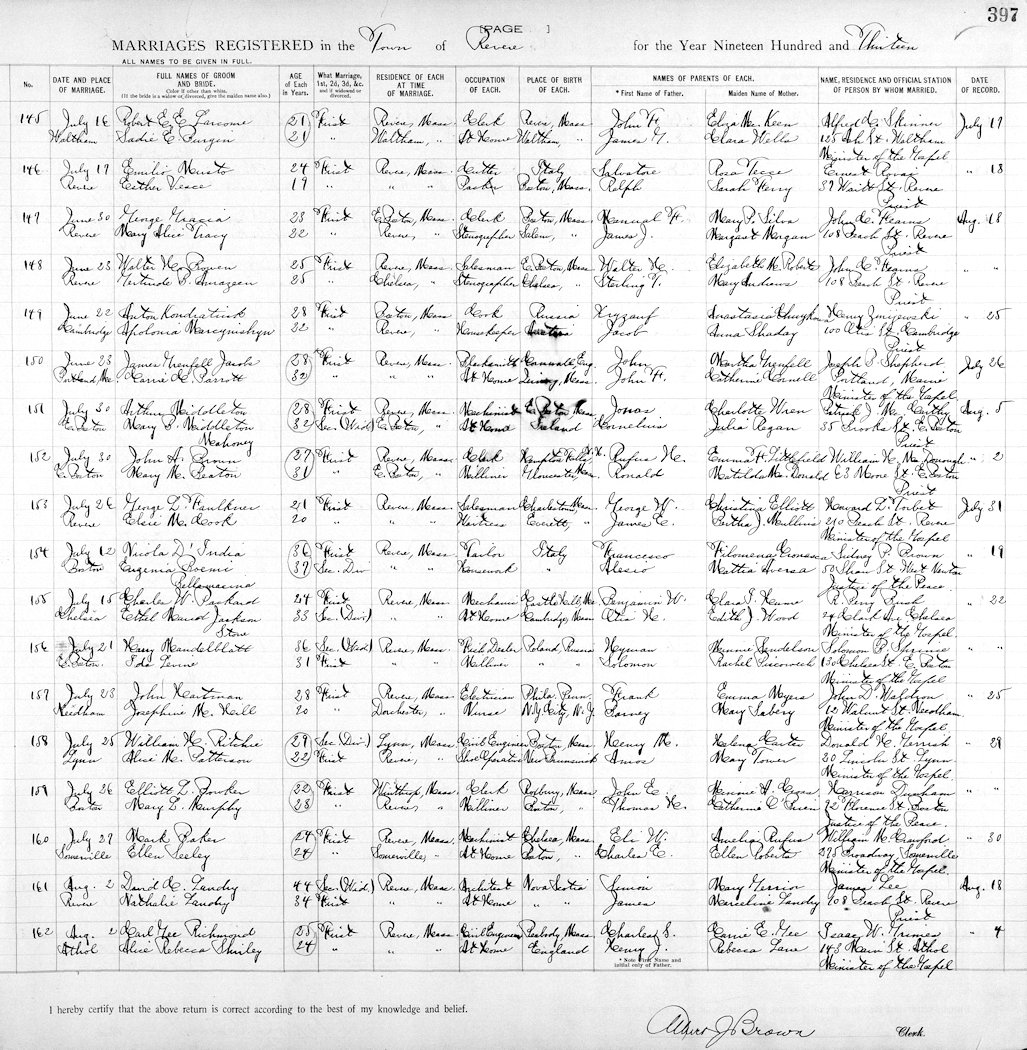 397
[PAGE ]
MARRIAGES REGISTERED in the Town of Revere for the Year Nineteen Hundred and Thirteen
ALL NAMES TO BE GIVEN IN FULL.
No. DATE AND PLACE OF MARRIAGE. FULL NAMES OF GROOM AND BRIDE. (Color if other than white. (If the bride is a widow or divorced, give the maiden name also.) AGE of Each in Years. What Marriage, 1st, 2d, 3d, &c. and if widowed or divorced. RESIDENCE OF EACH AT TIME OF MARRIAGE. OCCUPATION OF EACH. PLACE OF BIRTH OF EACH. NAMES OF PARENTS OF EACH. * First Name of Father. Maiden Name of Mother. NAME, RESIDENCE AND OFFICIAL STATION OF PERSON BY WHOM MARRIED. DATE OF RECORD.
145 July 16 Robert E. E. Larcome 21 First Revere, Mass. Clerk Revere, Mass. John F. Eliza Keen Alfred C. Skinner July 17
Waltham Sadie E. 21 " Waltham, " At Home Waltham, " James Clara Wells 125 Ash St. Waltham
Minister of the Gospel
146 July 17 Emilio Musto 24 First Revere, Mass. Cutter Italy Salvatore Rosa Tecce Ernest " 18
Revere Esther 19 " " " Packer Boston, Mass. Ralph Sarah Ferry 37 St. Revere
Priest
147 June 30 George Gracia 23 First E. Boston, Mass. Clerk Boston, Mass. Manual F. Mary P. Silva John C. Fearns Aug. 18
Revere Mary Alice Tracy 22 " Revere, " Stenographer Salem, " James J. Margaret Morgan 108 Beach St. Revere
Priest
148 June 23 Walter H. Bowen 25 First Revere, Mass. Salesman E. Boston, Mass. Walter H. Elizabeth M. Roberts John C. Fearns "
Revere Gertrude B. 25 " Chelsea, " Stenographer Chelsea, " Sterling Mary Andrews 708 Beach St. Revere
Priest
149 June 22 Anton Kondratiuk 28 First Boston, Mass. Cook Russia Anastasia Henry " 25
Cambridge Apolonia 22 " Revere, " Housekeeper Austria Jacob Anna 100 Otis St. Cambridge
Priest
150 June 23 James Grenfell Jacobs 28 First Revere, Mass. Blacksmith Cornwall Eng. John Martha Grenfell Joseph B. Shepherd July 26
Portland, Me. Carrie L. Parrott 32 " " " At Home Mass. John F. Catherine Cornell Portland, Maine
Minister of the Gospel.
151 July 30 Arthur Middleton 28 First Revere, Mass. Machinist E. Boston, Mass. Jonas Charlotte Wren Patrick J. McCarthy Aug. 5
E. Boston Mary B. Middleton 32 Sec. (Wid) E. Boston, " At Home Ireland Cornelius Julia Regan 35 Brooks St. E. Boston
Mahoney Priest
152 July 30 John A. Brown 27 First Revere, Mass. Clerk Hampton Falls, N.H. Rufus H. Emma F. Littlefield William H. McDonough " 2
E. Boston Mary M. Beaton 31 " E. Boston, " Milliner Gloucester, Mass. Ronald Matilda McDonald 63 More St. E. Boston
Priest
153 July 26 George L. Faulkner 21 First Revere, Mass. Salesman Charlestown, Mass. George W. Christina Elliott Howard L. Torbet July 31
Revere Elsie M. Cook 20 " " " Waitress Everett, " James E. Bertha J. Mullins 210 Beach St. Revere
Minister of the Gospel
154 July 12 Nicola D'India 36 First Revere, Mass. Tailor Italy Francesco Filomena Sidney P. Brown " 19
Boston Eugenia Boemi 37 Sec. Div " " Housework " Alesio Mattia Aversa 50 Shaw St. West Newton
Bellamacina Justice of the Peace
155 July 15 Charles W. Packard 24 First Revere, Mass. Mechanic Castle Hill, Me. Benjamin W. Clara S. Hume R. Perry Bush " 22
Chelsea Ethel Maud Jackson 33 Sec. (Div) " " At Home Cambridge, Mass. Otis H. Edith J. Wood 24 Clark Ave. Chelsea
Stone Minister of the Gospel.
156 July 21 Harry Mandelblatt 36 Sec. (Wid) Revere, Mass. Fish Dealer Poland, Russia Hyman Minnie Sendelson Solomon P. Shprince " "
E. Boston Ida Levine 31 First " " Milliner " " Solomon Rachel 130 Chelsea St. E. Boston
Minister of the Gospel
157 July 23 John Hartman 28 First Revere, Mass. Electrician Phila. Penn. Frank Emma Myers John D. Waldron " 25
Needham Josephine M. Hill 20 " Dorchester, " Nurse N.Y. City, N.Y. Barney Mary Sabery 12 Walnut St. Needham
Minister of the Gospel
158 July 25 William H. Ritchie 29 Sec. (Div) Lynn, Mass. Civil Engineer Boston, Mass. Henry M. Helena Carter Donald H. Gerrish " 29
Lynn Alice M. Patterson 22 First Revere, " Shoe Operative New Brunswick Amos Mary Tower 20 Lincoln St. Lynn
Minister of the Gospel.
159 July 26 Elliott L. Fowker 32 First Winthrop, Mass. Clerk Roxbury, Mass. John E. A. Harrison Dunham " "
Boston Mary L. Murphy 28 " Revere, " Milliner Boston, " Thomas H. Catherine C. 72 Florence St. Boston
Justice of the Peace
160 July 27 Mark Baker 24 First Revere, Mass. Machinist Chelsea, Mass. Eli W. Amelia Rufus William M. Crawford " 30
Somerville Ellen Seeley 24 " Somerville, " At Home Boston, " Charles E. Ellen Roberts 275 Broadway Somerville
Minister of the Gospel.
161 Aug. 2 David C. Landry 44 Sec. (Wid.) Revere, Mass. Architect Nova Scotia Simon Mary James Lee Aug. 18
Revere Nathalie Landry 34 First " " At Home " " James Marceline Landry 708 Beach St. Revere
Priest
162 Aug. 2 Carl Gee Richmond 25 First Revere, Mass. Civil Engineer Peabody, Mass. Charles S. Carrie E. Gee Isaac W. Grimes " 4
Athol Alice Rebecca Shirley 24 " " At Home England Henry J. Rebecca Lane 145 Main St. Athol
* Note First Name and initial only of Father. Minister of the Gospel
I hereby certify that the above return is correct according to the best of my knowledge and belief.
Albert J. Brown Clerk.